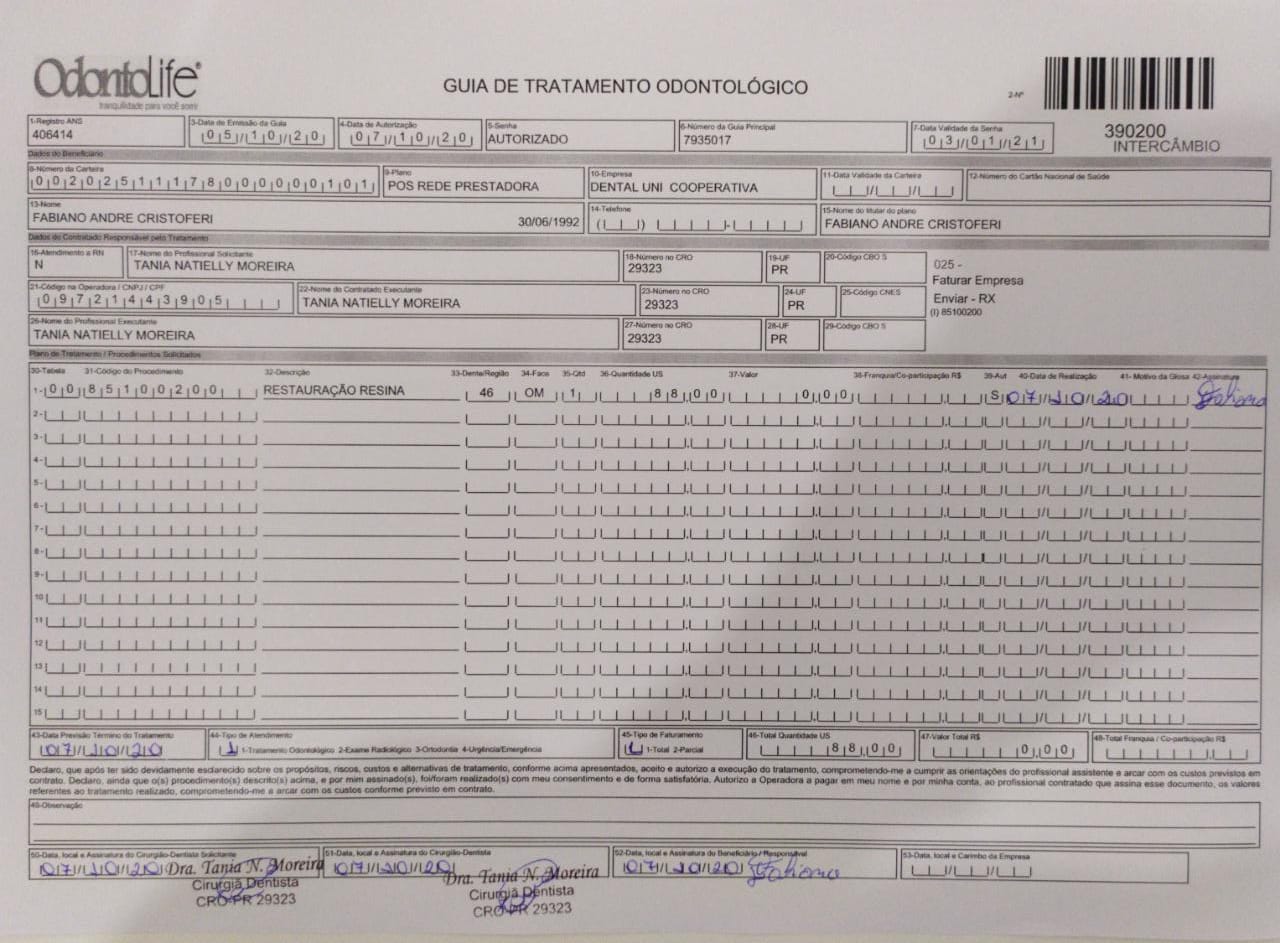 OdontoLife®
tranquilidade para você sorrir
GUIA DE TRATAMENTO ODONTOLÓGICO
2-Nº
390200
INTERCÂMBIO
1-Registro ANS
406414
3-Data de Emissão da Guia
05/10/20
4-Data de Autorização
07/10/20
5-Senha
AUTORIZADO
6-Número da Guia Principal
7935017
7-Data Validade da Senha
03/01/21
Dados do Beneficiário
8-Número da Carteira
00202511178000000101
9-Plano
POS REDE PRESTADORA
10-Empresa
DENTAL UNI COOPERATIVA
11-Data Validade da Carteira
12-Número do Cartão Nacional de Saúde
13-Nome
FABIANO ANDRE CRISTOFERI 30/06/1992
14-Telefone
15-Nome do titular do plano
FABIANO ANDRE CRISTOFERI
Dados do Contratado Responsável pelo Tratamento
16-Atendimento a RN
N
17-Nome do Profissional Solicitante
TANIA NATIELLY MOREIRA
18-Número no CRO
29323
19-UF
PR
20-Código CBO S
025 -
Faturar Empresa
Enviar - RX
(I) 85100200
21-Código na Operadora / CNPJ / CPF
09721443905
22-Nome do Contratado Executante
TANIA NATIELLY MOREIRA
23-Número no CRO
29323
24-UF
PR
25-Código CNES
26-Nome do Profissional Executante
TANIA NATIELLY MOREIRA
27-Número no CRO
29323
28-UF
PR
29-Código CBO S
Plano de Tratamento / Procedimentos Solicitados
30-Tabela 31-Código do Procedimento 32-Descrição 33-Dente/Região 34-Face 35-Qtd 36-Quantidade US 37-Valor 38-Franquia/Co-participação R$ 39-Aut 40-Data de Realização 41- Motivo da Glosa 42-Assinatura
1- 00 85100200 RESTAURAÇÃO RESINA 46 OM 1 88,00 0,00 S 07/10/20 Fabiano
2-
3-
4-
5-
6-
7-
8-
9-
10
11
12
13
14
15
43-Data Previsão Término do Tratamento
07/10/20
44-Tipo de Atendimento
1 1-Tratamento Odontológico 2-Exame Radiológico 3-Ortodontia 4-Urgência/Emergência
45-Tipo de Faturamento
1 1-Total 2-Parcial
46-Total Quantidade US
88,00
47-Valor Total R$
0,00
48-Total Franquia / Co-participação R$
Declaro, que após ter sido devidamente esclarecido sobre os propósitos, riscos, custos e alternativas de tratamento, conforme acima apresentados, aceito e autorizo a execução do tratamento, comprometendo-me a cumprir as orientações do profissional assistente e arcar com os custos previstos em
contrato. Declaro, ainda que o(s) procedimento(s) descrito(s) acima, e por mim assinado(s), foi/foram realizado(s) com meu consentimento e de forma satisfatória. Autorizo a Operadora a pagar em meu nome e por minha conta, ao profissional contratado que assina esse documento, os valores
referentes ao tratamento realizado, comprometendo-me a arcar com os custos conforme previsto em contrato.
49-Observação
50-Data, local e Assinatura do Cirurgião-Dentista Solicitante
07/10/20 Dra. Tania N. Moreira
Cirurgiã Dentista
CRO-PR 29323
51-Data, local e Assinatura do Cirurgião-Dentista
07/10/20 Dra. Tania N. Moreira
Cirurgiã Dentista
CRO-PR 29323
52-Data, local e Assinatura do Beneficiário / Responsável
07/10/20 Fabiano
53-Data, local e Carimbo da Empresa